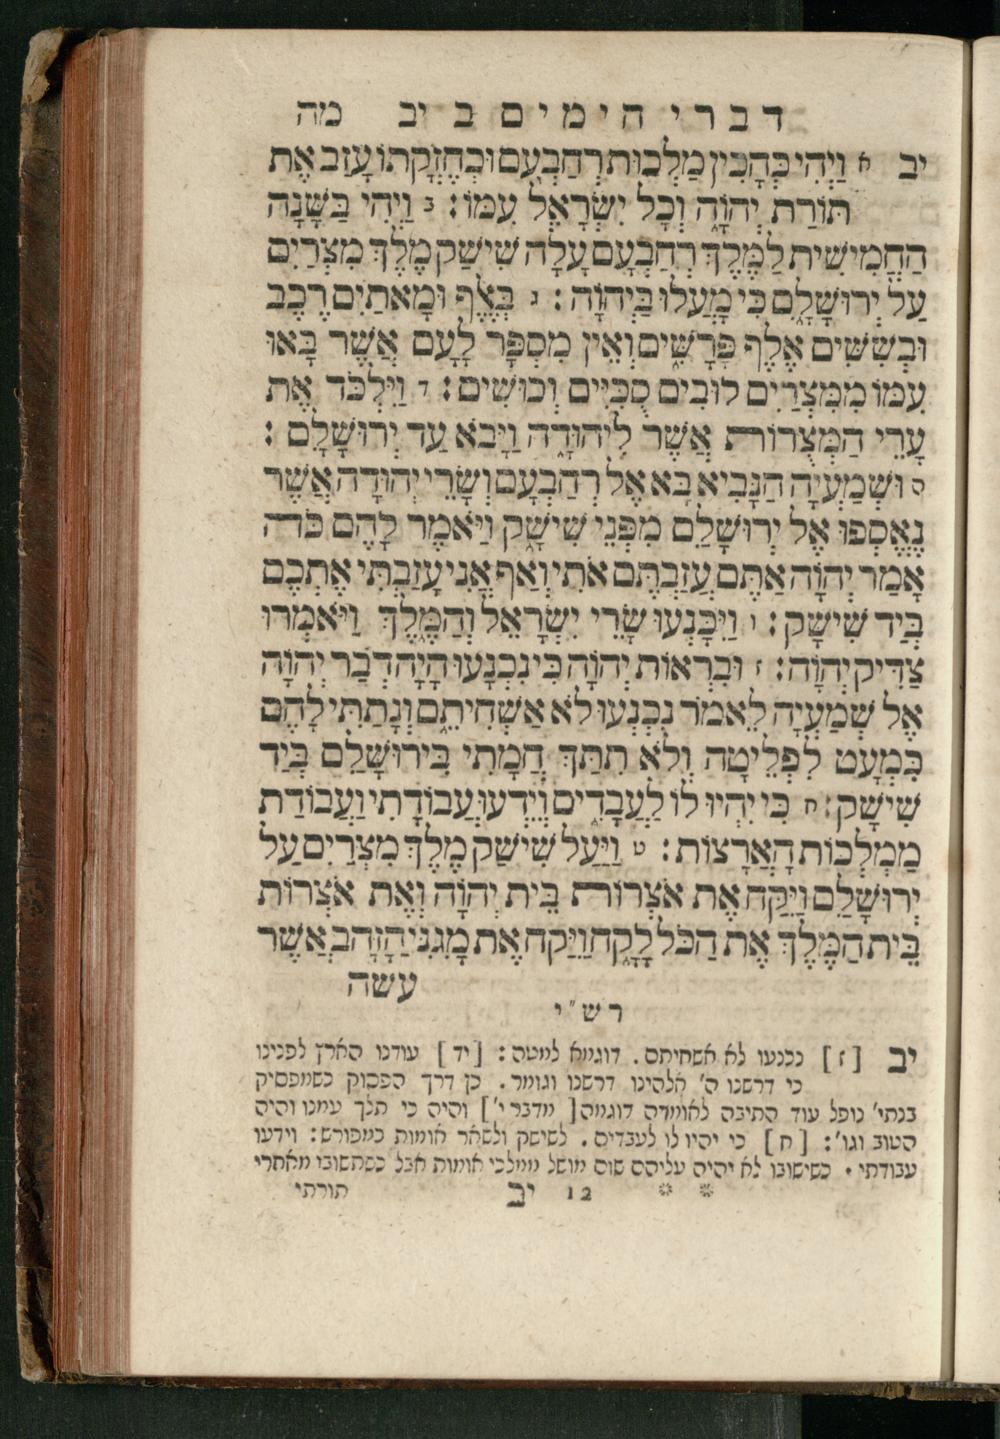 דברי הימים ב יב מה
יב א וַיְהִי כְּהָכִין מַלְכוּת רְחַבְעָם וּכְחֶזְקָתוֹ עָזַב אֶת
תּוֹרַת יְהוָה וְכָל יִשְׂרָאֵל עִמּוֹ: ב וַיְהִי בַּשָּׁנָה
הַחֲמִישִׁית לַמֶּלֶךְ רְחַבְעָם עָלָה שִׁישַׁק מֶלֶךְ מִצְרַיִם
עַל יְרוּשָׁלִָם כִּי מָעֲלוּ בַּיהוָה: ג בְּאֶלֶף וּמָאתַיִם רֶכֶב
וּבְשִׁשִּׁים אֶלֶף פָּרָשִׁים וְאֵין מִסְפָּר לָעָם אֲשֶׁר בָּאוּ
עִמּוֹ מִמִּצְרַיִם לוּבִים סֻכִּיִּים וְכוּשִׁים: ד וַיִּלְכֹּד אֶת
עָרֵי הַמְּצֻרוֹת אֲשֶׁר לִיהוּדָה וַיָּבֹא עַד יְרוּשָׁלִָם:
ה וּשְׁמַעְיָה הַנָּבִיא בָּא אֶל רְחַבְעָם וְשָׂרֵי יְהוּדָה אֲשֶׁר
נֶאֶסְפוּ אֶל יְרוּשָׁלִַם מִפְּנֵי שִׁישָׁק וַיֹּאמֶר לָהֶם כֹּה
אָמַר יְהוָה אַתֶּם עֲזַבְתֶּם אֹתִי וְאַף אֲנִי עָזַבְתִּי אֶתְכֶם
בְּיַד שִׁישָׁק: ו וַיִּכָּנְעוּ שָׂרֵי יִשְׂרָאֵל וְהַמֶּלֶךְ וַיֹּאמְרוּ
צַדִּיק יְהוָה: ז וּבִרְאוֹת יְהוָה כִּי נִכְנָעוּ הָיָה דְבַר יְהוָה
אֶל שְׁמַעְיָה לֵאמֹר נִכְנְעוּ לֹא אַשְׁחִיתֵם וְנָתַתִּי לָהֶם
כִּמְעַט לִפְלֵיטָה וְלֹא תִתַּךְ חֲמָתִי בִּירוּשָׁלִַם בְּיַד
שִׁישָׁק: ח כִּי יִהְיוּ לוֹ לַעֲבָדִים וְיֵדְעוּ עֲבוֹדָתִי וַעֲבוֹדַת
מַמְלְכוֹת הָאֲרָצוֹת: ט וַיַּעַל שִׁישַׁק מֶלֶךְ מִצְרַיִם עַל
יְרוּשָׁלִַם וַיִּקַּח אֶת אֹצְרוֹת בֵּית יְהוָה וְאֶת אֹצְרוֹת
בֵּית הַמֶּלֶךְ אֶת הַכֹּל לָקָח וַיִּקַּח אֶת מָגִנֵּי הַזָּהָב אֲשֶׁר
עשה
רש״י
יב [ז] נכנעו לא אשחיתם. דוגמא למטה: [יד] עודנו הארץ לפנינו
כי דרשנו ה' אלהינו דרשנו וגומר. כן דרך הפסוק כשמפסיק
בנתי' נופל עוד התיבה לאומרה דוגמה [מדבר י'] והיה כי תלך עמנו והיה
הטוב וגו': [ח] כי יהיו לו לעבדים. לשישק ולשאר אומות כמפורש: וידעו
עבודתי. כשישובו לא יהיה עליהם שום מושל ממלכי אומות אבל כשתשובו מאחרי
** 12 יב תורתי